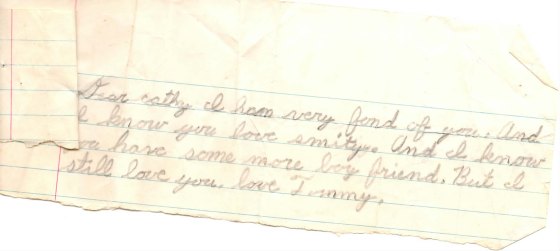 Dear cathy I ham very fond of you. And
I know you love smity. And I know
you have some more boy friend. But I
still love you. love Tommy.